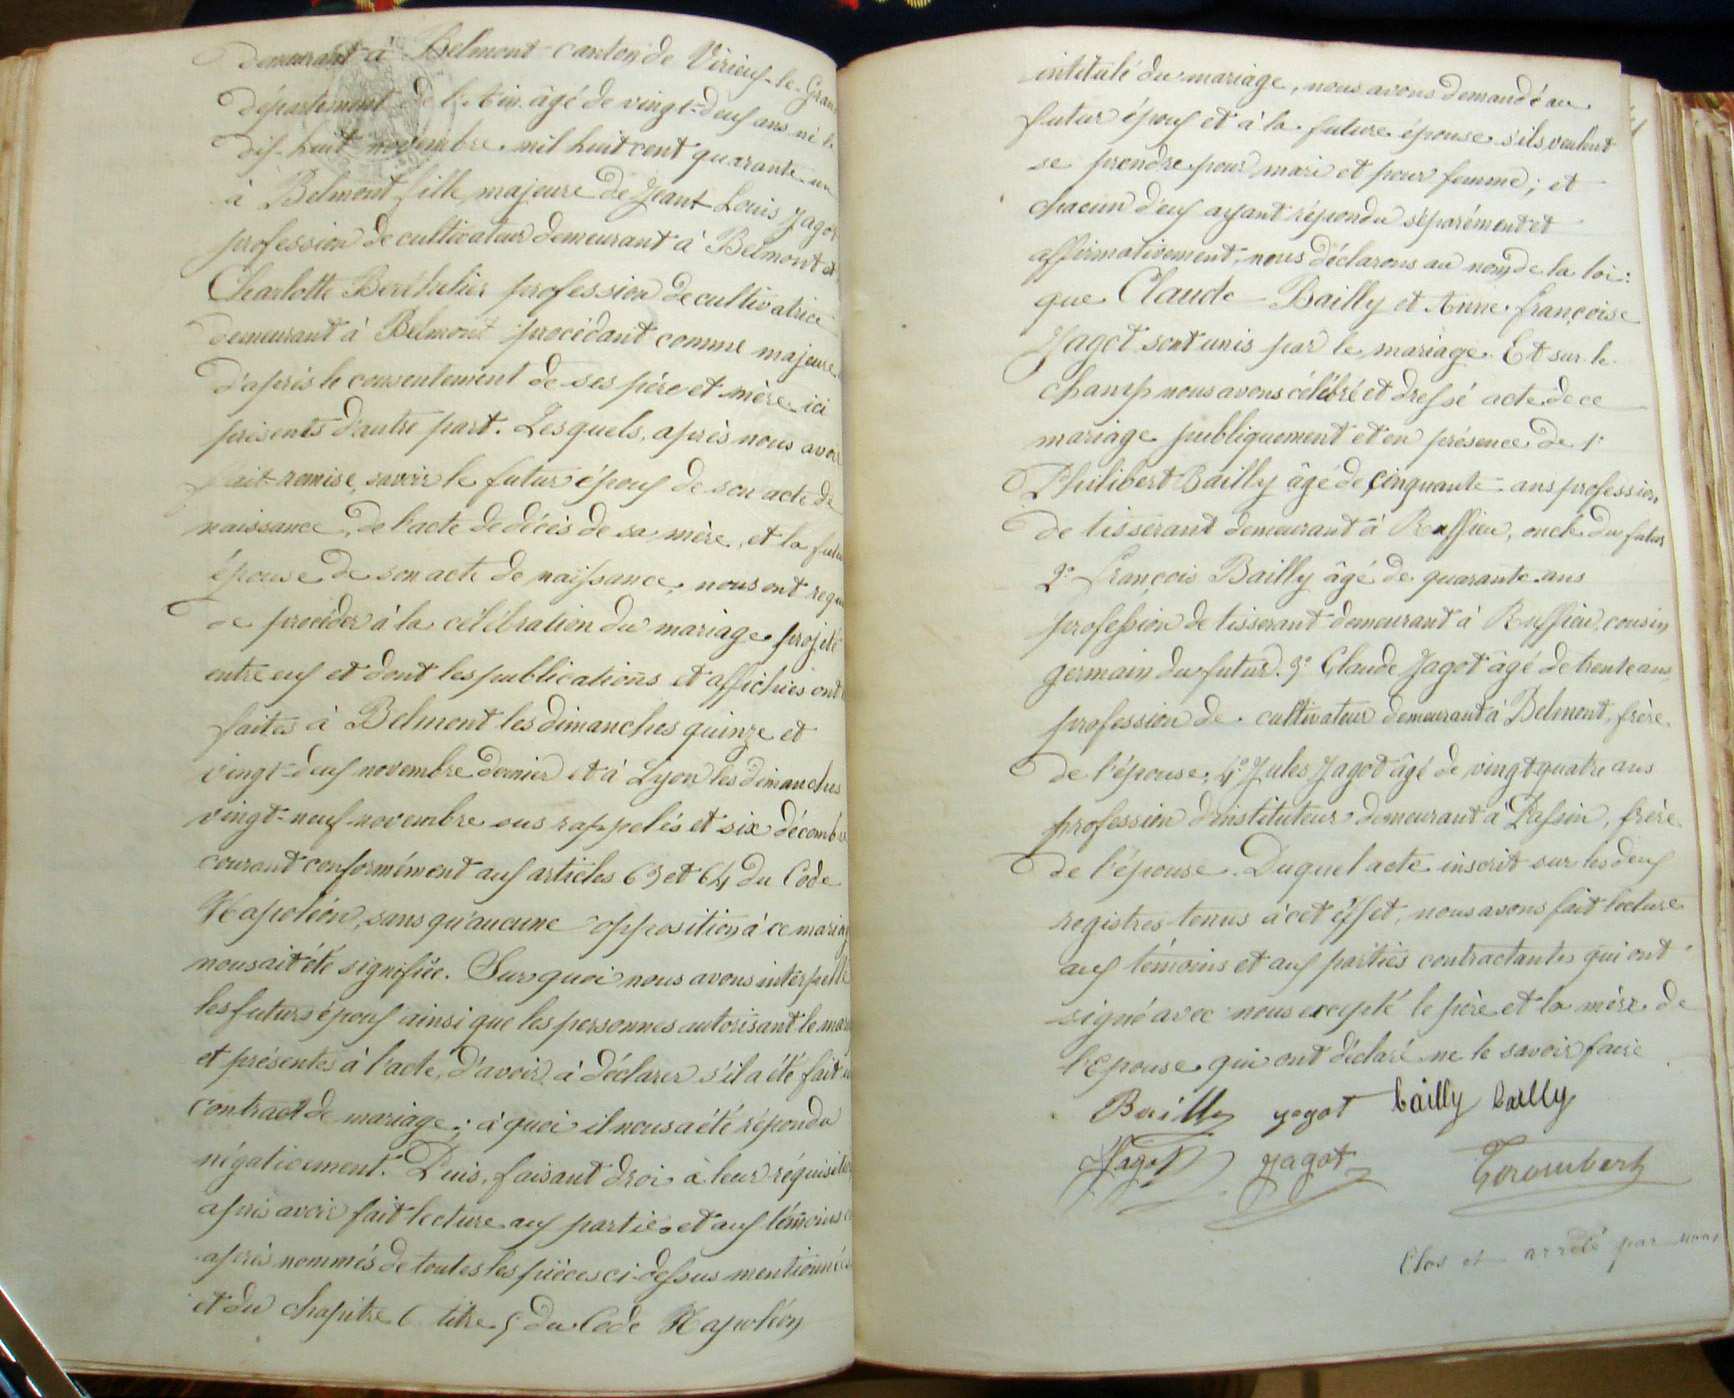 demeurant à Belmont canton de Virieux-le-Grand
département de l'Ain âgé de vingt-deux ans né le
dix-huit novembre mil huit cent quarante un
à Belmont fille majeure de Jeant Louis Jagot
profession de cultivateur demeurant à Belmont et
Charlotte Berthelier profession de cultivatrice
demeurant à Belmont procédant comme majeure
d'après le consentement de ses père et mère ici
présents d'autre part. Lesquels, après nous avoir
fait remise, savoir le futur époux de son acte de
naissance, de l'acte de décès de sa mère, et la future
épouse de son acte de naissance, nous ont requis
de procéder à la célébration du mariage projeté
entre eux et dont les publications et affiches ont
faites à Belmont les dimanches quinze et
vingt-deux novembre dernier et à Lyon les dimanches
vingt-neuf novembre sus rappelés et six décembre
courant conformément aux articles 63 et 64 du Code
Napoléon, sans qu'aucune opposition à ce mariage
nous ait été signifiée. Sur quoi nous avons interpellé
les futurs époux ainsi que les personnes autorisant le mariage
et présentes à l'acte, d'avoir à déclarer s'il a été fait un
contract de mariage; à quoi il nous a été répondu
négativement. Puis, faisant droi à leur réquisition
après avoir fait lecture aux parties et aux témoins ci
après nommés de toutes les pièces ci-dessus mentionnées
et du chapitre 6 titre 5 du Code Napoléon
intitulé du mariage, nous avons demandé au
futur époux et à la future épouse s'ils veulent
se prendre pour mari et pour femme; et
chacun d'eux ayant répondu séparément et
affirmativement, nous déclarons au nom de la loi:
que Claude Bailly et Anne françoise
Jagot sont unis par le mariage. Et sur le
champ nous avons célébré et dressé acte de ce
mariage publiquement et en présence de 1°
Philibert Bailly âgé de cinquante ans profession
de tisserant demeurant à Ruffieu, oncle du futur
2° françois Bailly âgé de quarante ans
profession de tisserant demeurant à Ruffieu, cousin
germain du futur. 3° Claude Jagot âgé de trente ans
profession de cultivateur demeurant à Belmont, frère
de l'épouse, 4° Jules Jagot âgé de vingt quatre ans
profession d'instituteur demeurant à Passin, frère
de l'épouse. Duquel acte inscrit sur les deux
registres tenus à cet effet, nous avons fait lecture
aux témoins et aux parties contractantes qui ont
signé avec nous excepté le père et la mère de
l'épouse qui ont déclaré ne le savoir faire
Bailly jagot bailly bailly
Jagot jagot Trombert
Clos et arrêté par nous